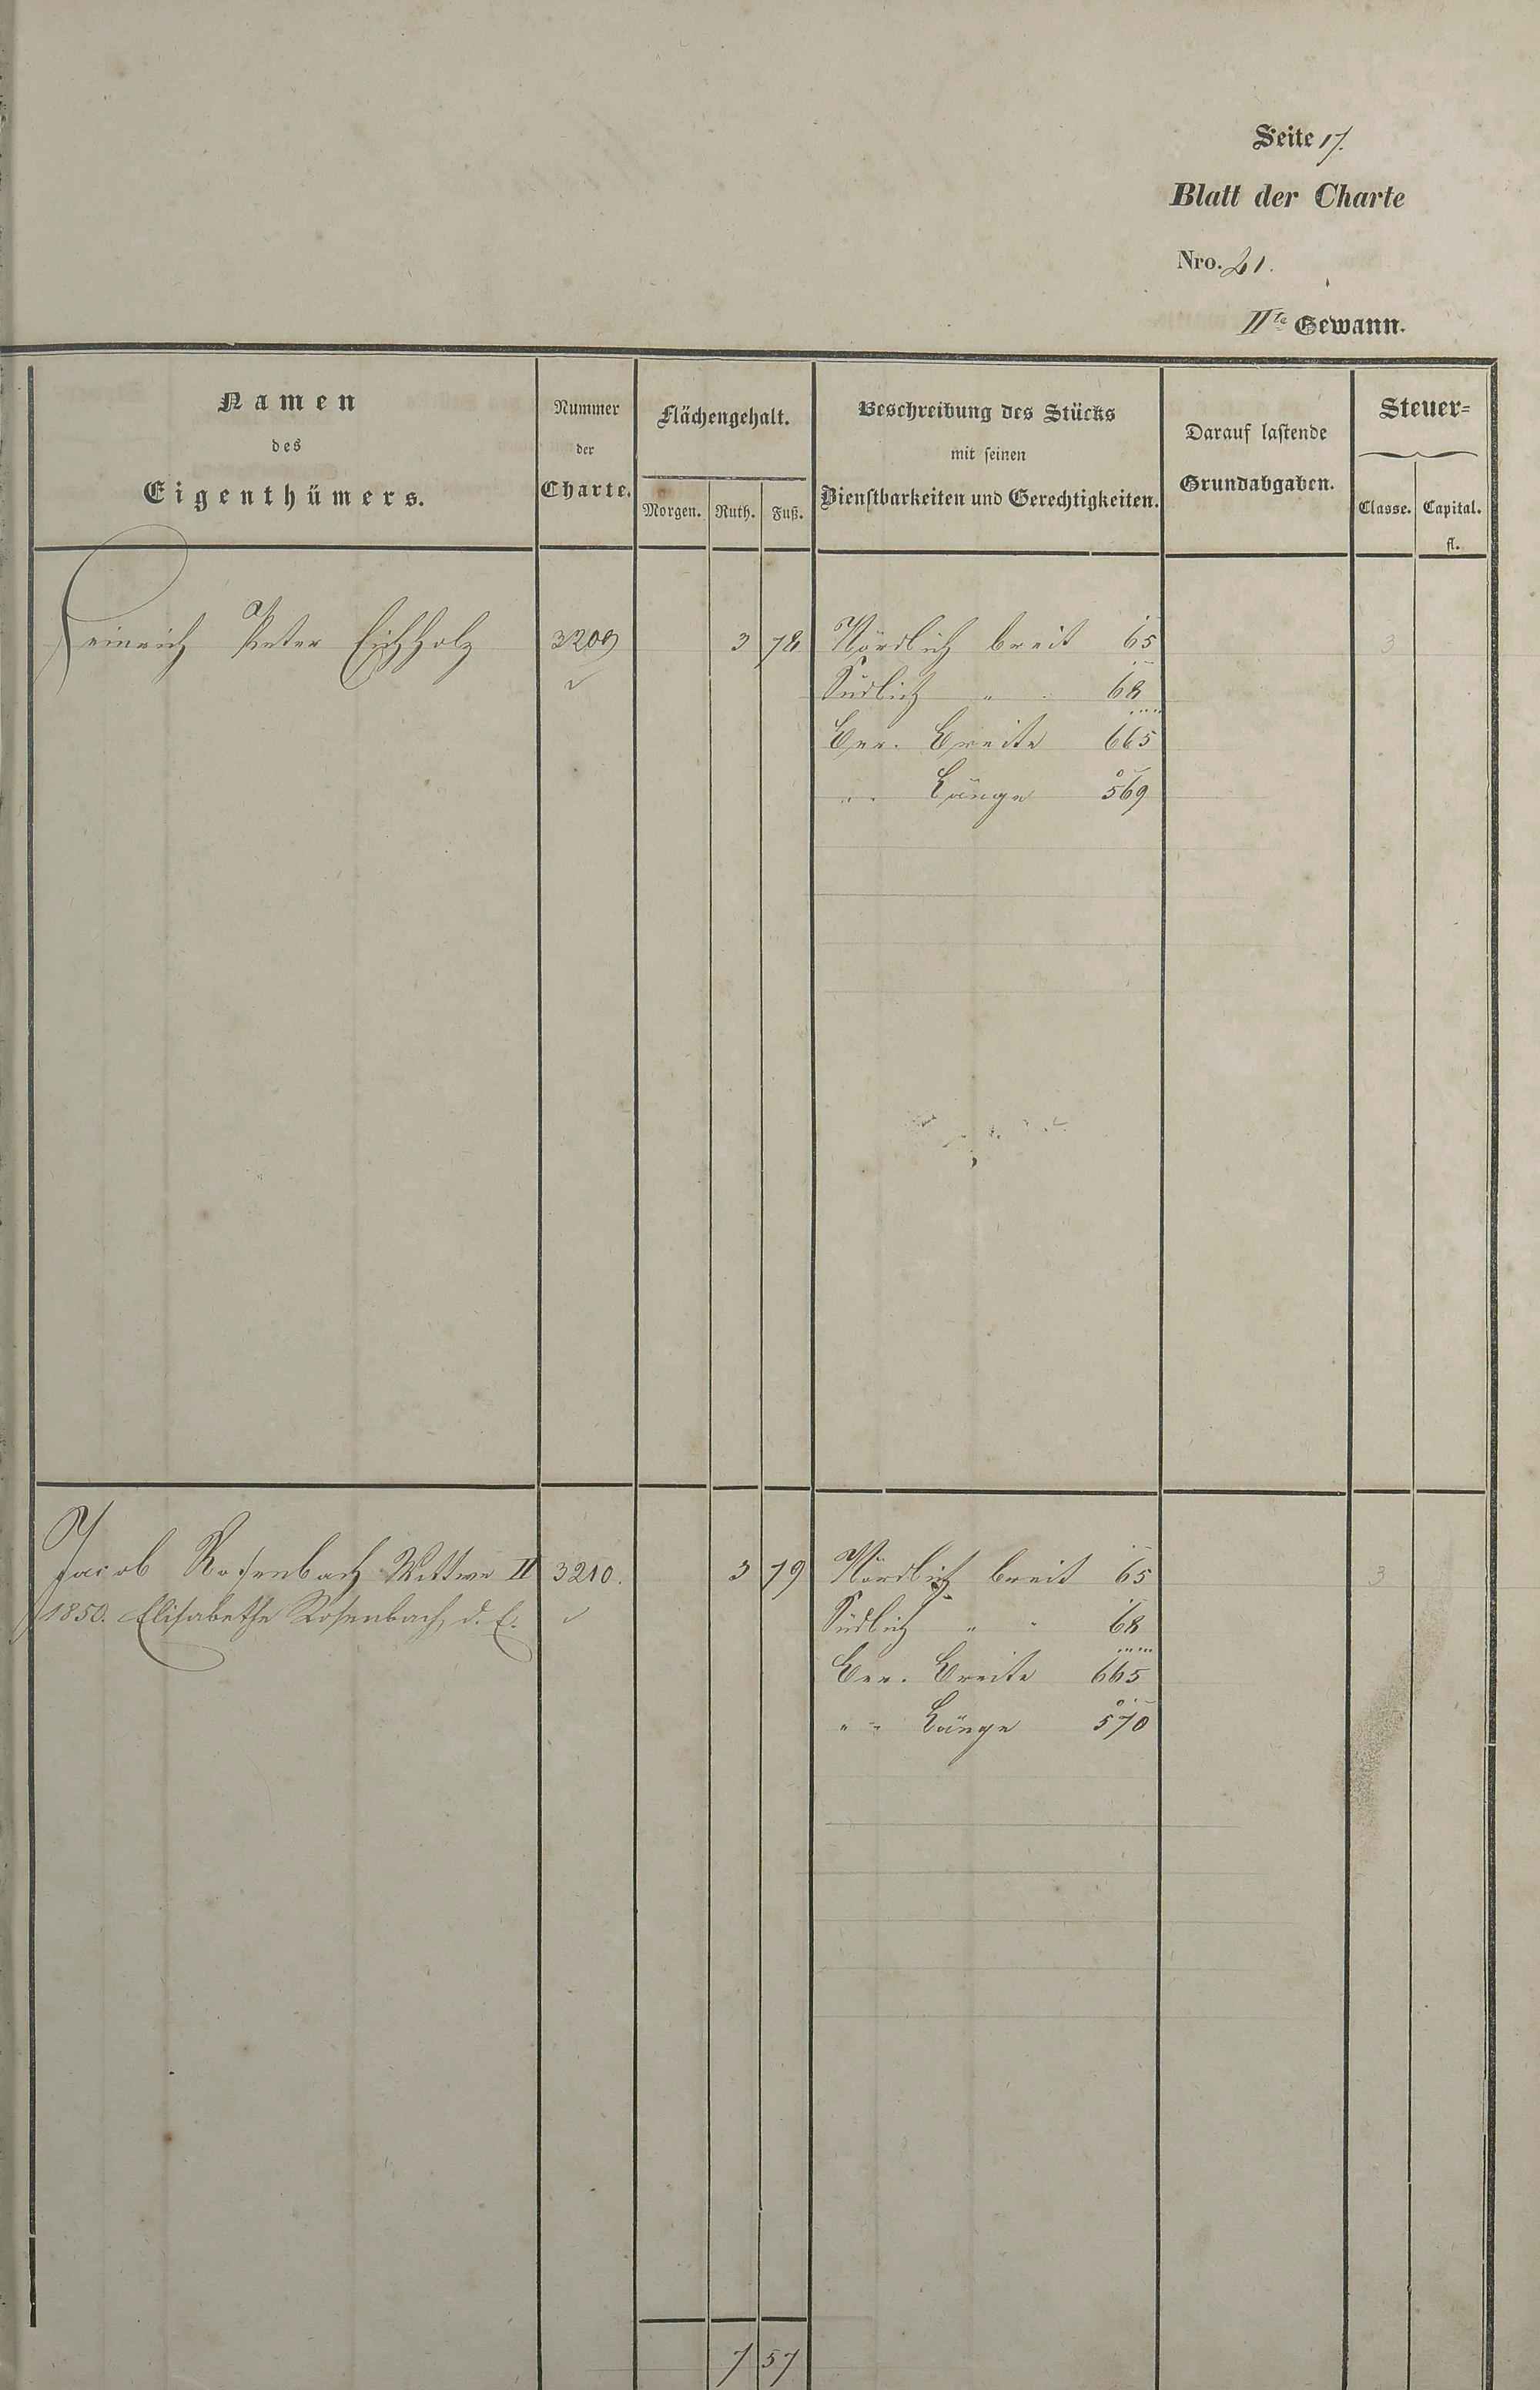 Seite 17.
Blatt der Charte
Nro. 21.
IIte Gewann.
Namen
des
Eigenthümers.
Nummer
der
Charte.
Flächengehalt.
Morgen. Ruth. Fuß.
Beschreibung des Stücks
mit seinen
Dienstbarkeiten und Gerechtigkeiten.
Darauf lastende
Grundabgaben.
Steuer=
Classe. Capital.
fl.
Heinrich Peter Eichholz 3209 3 78 Nördlich breit 65 3
Südlich " " 68
Ber. Breite 665
" " Länge 569
Jacob Rosenbach Wittwe II 3210. 3 79 Nördlich breit 65 3
1850. Elisabethe Rosenbach, d. E. Südlich " " 68
Ber. Breite 665
" " Länge 570
7 57